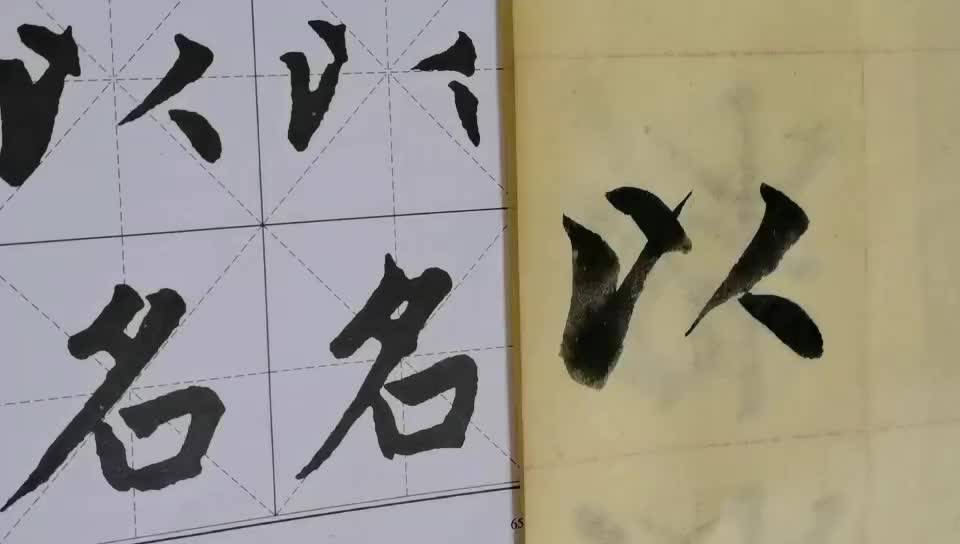 以 以
名 名
65
以